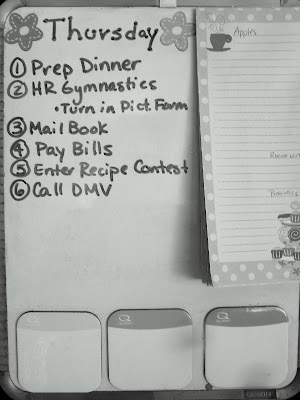 Thursday
① Prep Dinner
② HR Gymnastics
• Turn in Pict. Form
③ Mail Book
④ Pay Bills
⑤ Enter Recipe Contest
⑥ Call DMV
Apples